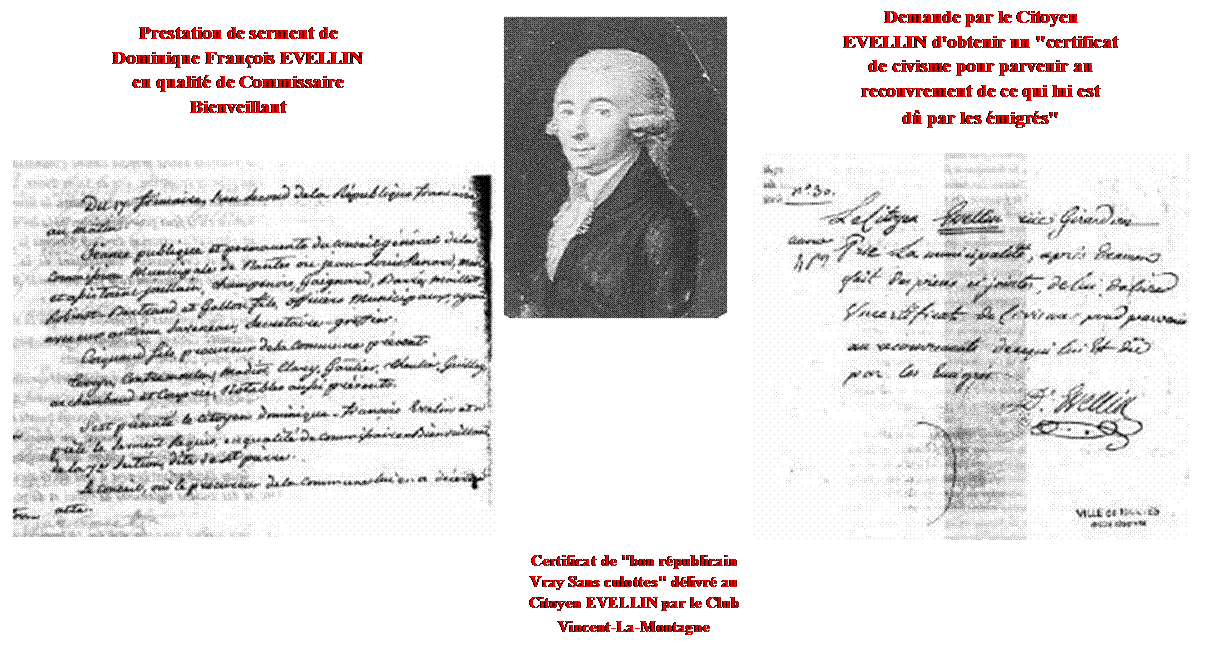 Prestation de serment de
Dominique François EVELLIN
en qualité de Commissaire
Bienveillant
Demande par le Citoyen
EVELLIN d'obtenir un "certificat
de civisme pour parvenir au
recouvrement de ce qui lui est
dû par les émigrés"
Du 17 frimaire, l'an second de la République française
au matin
Séance publique et permanente du conseil général de la
Commission Municipale de Nantes où Jean Louis Renard, maire
officiers Municipaux
secrétaire greffier.
Coignard fils procureur de la Commune présent
notables aussi présents.
S'est présenté le citoyen dominique françois Evelin et a
prêté le serment Requis, en qualité de commissaire Bienveillant
de la 7e section, dite de St pierre.
Le conseil, ouï le procureur de la Commune lui en a décerné
acte.
n° 30.
Le Citoyen Evellin rue Girardon
Prie La municipalité, après Examen
fait des pieces cy jointes, de lui delivrer
Un certificat de Civisme pour parvenir
au recouvrement de ce qui lui Est Dû
par les Emigrés
Dque Evellin
VILLE DE NANTES
Certificat de "bon républicain
Vray Sans culottes" délivré au
Citoyen EVELLIN par le Club
Vincent-La-Montagne